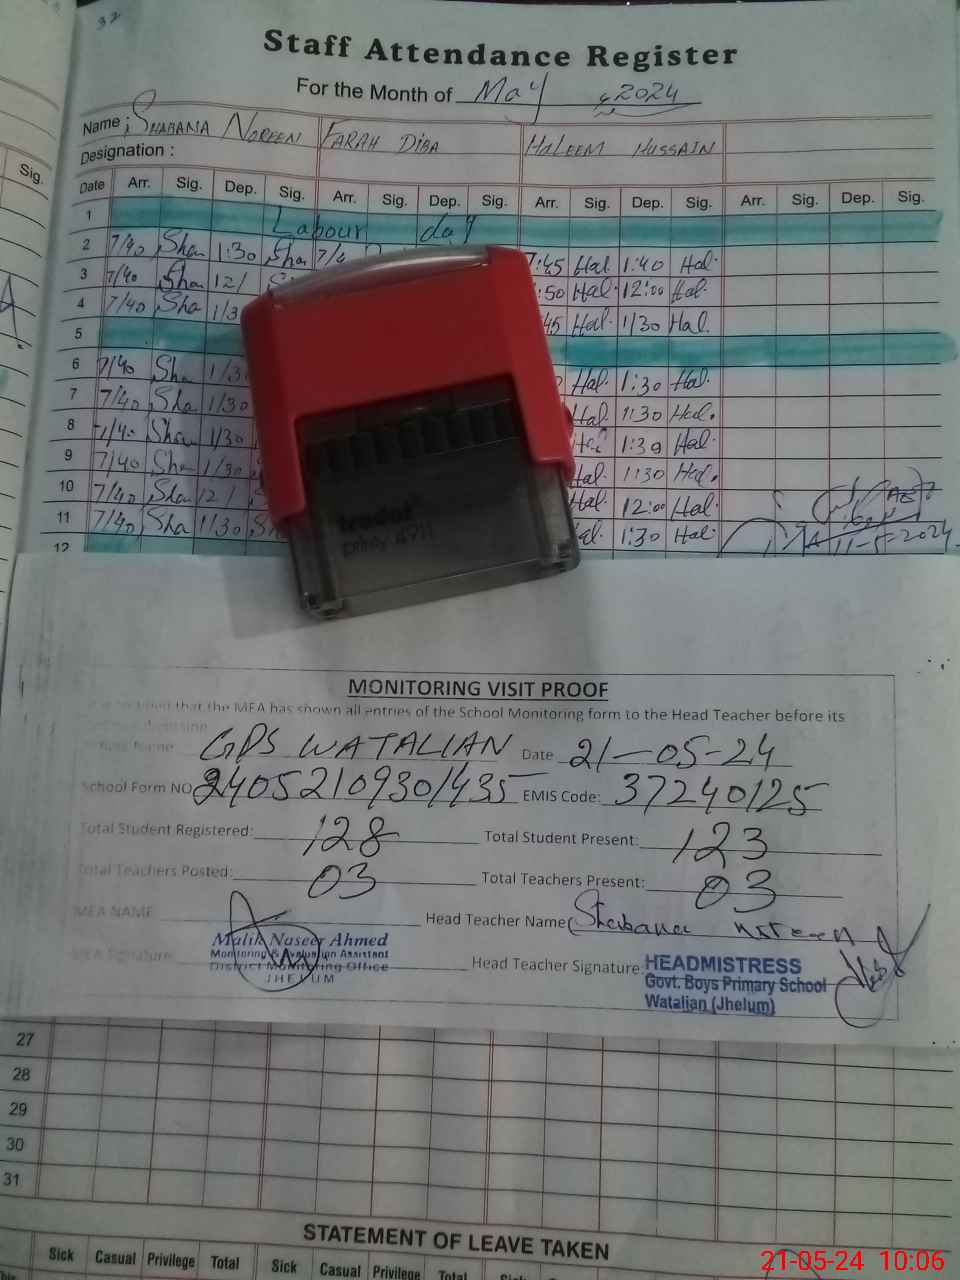 32
Staff Attendance Register
For the Month of May 2024
Name : SHABANA NOREEN FARAH DIBA HALEEM HUSSAIN
Designation :
Sig.
Date Arr. Sig. Dep. Sig. Arr. Sig. Dep. Sig. Arr. Sig. Dep. Sig. Arr. Sig. Dep. Sig.
1 Labour day
2 7/40 Sha 1:30 Sha 7/4 7:45 Hal. 1:40 Hal.
3 7/40 Sha 12/ :50 Hal. 12:00 Hal.
4 7/40 Sha 1/3 45 Hal. 1/30 Hal.
5
6 7/40 Sha 1/30 Hal. 1:30 Hal.
7 7/40 Sha 1/30 Hal. 1:30 Hal.
8 7/40 Sha 1/30 Hal. 1:30 Hal.
9 7/40 Sha 1/30 Hal. 1:30 Hal.
10 7/40 Sha 12/ Hal. 12:00 Hal.
11 7/40 Sha 1/30 Sh al. 1:30 Hal. 11-5-2024
12
trodat
printy 4911
MONITORING VISIT PROOF
that the MEA has shown all entries of the School Monitoring form to the Head Teacher before its
Name GPS WATALIAN Date 21-05-24
School Form NO 24052109301435 EMIS Code: 37240125
Total Student Registered: 128 Total Student Present: 123
Total Teachers Posted: 03 Total Teachers Present: 03
MEA NAME Head Teacher Name Shabana noreen
Malik Naseer Ahmed
Monitoring & Evaluation Assistant
District Monitoring Office
JHELUM
MEA Signature Head Teacher Signature:
HEADMISTRESS
Govt. Boys Primary School
Watalian (Jhelum)
27
28
29
30
31
STATEMENT OF LEAVE TAKEN
Sick Casual Privilege Total Sick Casual Privilege Total Sick
21-05-24 10:06